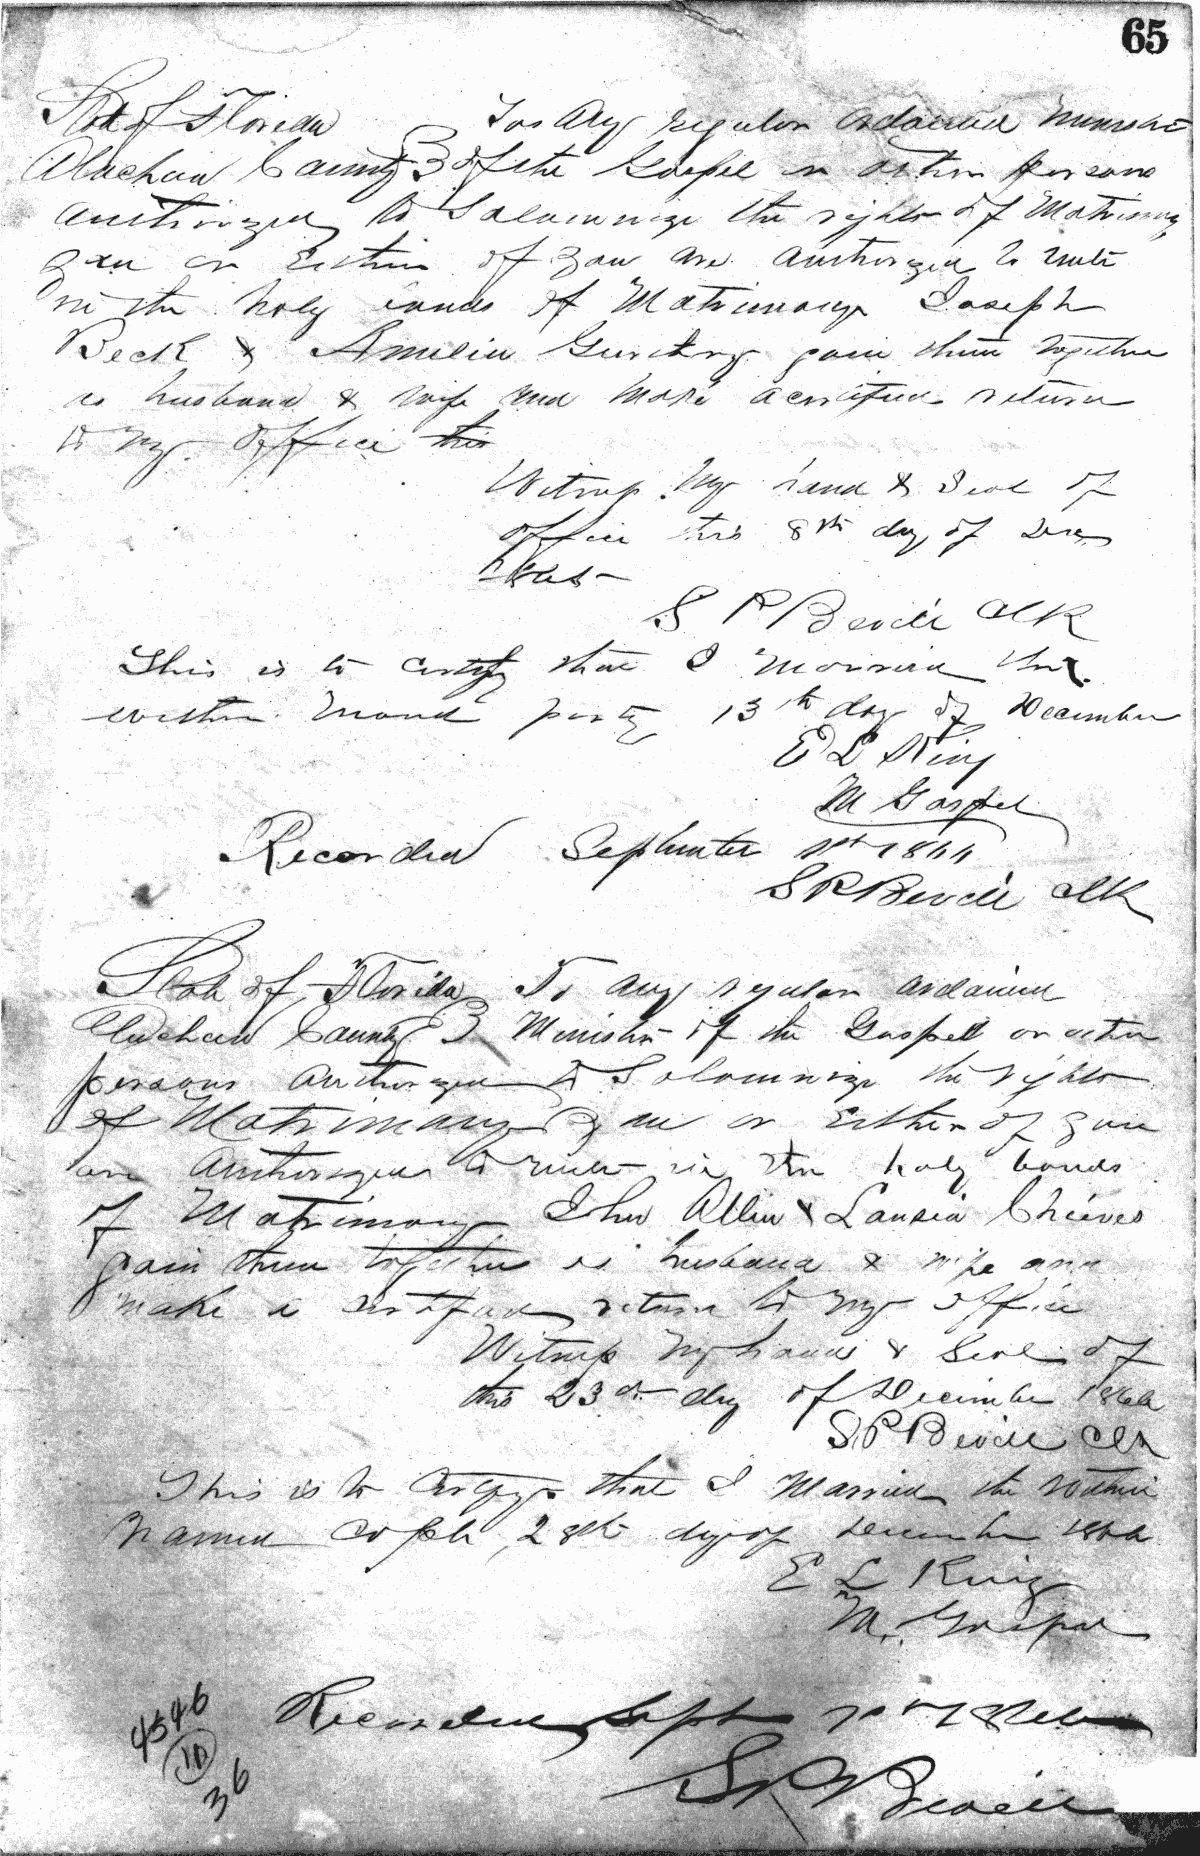 65
State of Florida To Any regular ordained Minister
Alachua County of the Gospel or other persons
authorized to Solomnize the rights of Matrimony
you or Either of you are authorized to unite
in the holy bonds of Matrimony Joseph
Beck & Amelia join them together
as husband & wife and make a certified return
to my office this
Witness My hand & Seal of
office this 8th day of Dec
S R Bevill Clk
This is to certify that I Married the
within named party 13th day of December
E L King
M Gospel
Recorded September 1st 1866
S R Bevill Clk
State of Florida To any regular ordained
Alachua County Minister of the Gospell or other
persons authorized to Solomnize the rights
of Matrimony you or Either of you
are Authorized to unite in the holy bonds
of Matrimony John Allen & Lausia Chieves
join them together as husband & wife and
make a certified return to my office
Witness My hand & Seal of
this 23d day of December 1866
S R Bevill Clk
This is to Certify that I Married the within
named couple, 28th day of December 1866
E L King
M. Gospel
Recorded Sept 1st
S R Bevill
4546
10
36